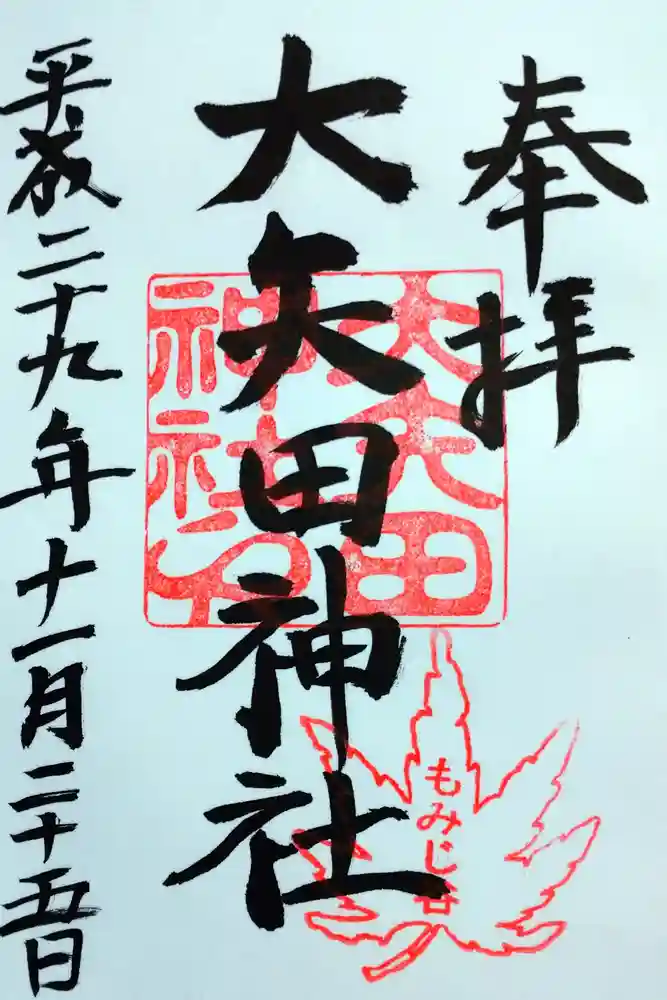 奉拝
大矢田神社
平成二十九年十一月二十五日
大矢田
神社
もみじ谷